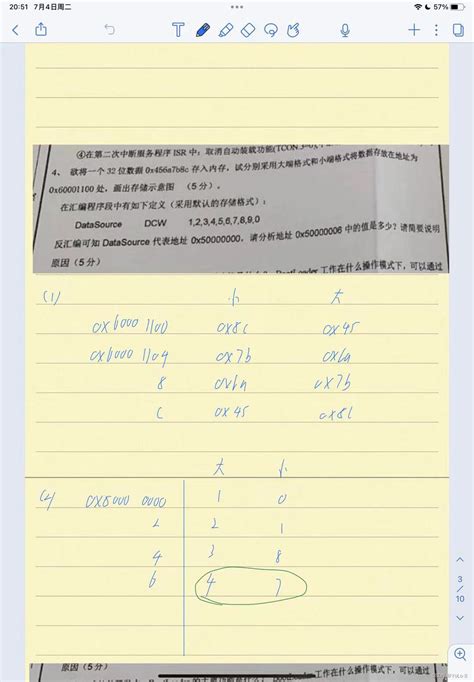 20:51 7月4日周二
57%
④在第二次中断服务程序 ISR 中：取消自动装载功能(TCON
4、 欲将一个 32 位数据 0x456a7b8c 存入内存，试分别采用大端格式和小端格式将数据存放在地址为
0x60001100 处，画出存储示意图 （5 分）。
在汇编程序段中有如下定义（采用默认的存储格式）：
DataSource DCW 1,2,3,4,5,6,7,8,9,0
反汇编可知 DataSource 代表地址 0x50000000，请分析地址 0x50000006 中的值是多少？请简要说明
原因（5 分）
工作在什么操作模式下，可以通过
(1) 小 大
0x6000 1100 0x8c 0x45
0x6000 1104 0x7b 0x6a
8 0x6a 0x7b
C 0x45 0x8c
大 小
(2) 0x5000 0000 1 0
2 2 1
4 3 8
6 4 7
3
10
原因（5 分）
工作在什么操作模式下，可以通过